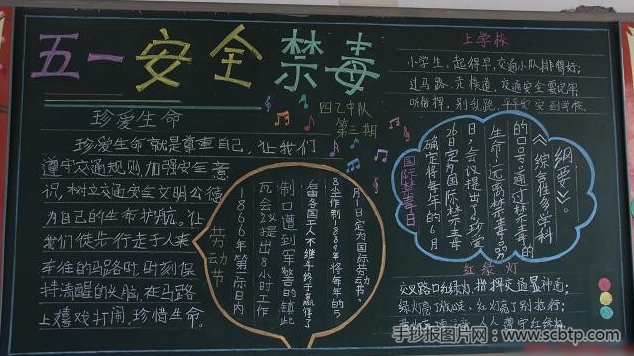 五一安全禁毒
四乙中队
第三期
珍爱生命
珍爱生命就是尊重自己,让我们
遵守交通规则,加强安全意
识,树立交通安全文明公德
为自己的生命护航。让
我们徒步行走于人来
车往的马路时,时刻保
持清醒的头脑,在马路
上嬉戏打闹,珍惜生命。
劳动节
1866年第一国际日内
瓦会议提出8小时工作
制口遭到军警的镇
各国工人不继 终于赢得了
8小作制于1889年将每年的5
月1日定为国际劳动节。
上学校
小学生,起得早,交通小队排得好;
过马路,走横道,交通安全要记牢
听指挥,别乱跑,平平安安到学校。
国际禁毒日
确定将每年的6月
26日定为国际禁毒的
日,会议提出了“珍爱
生命,远离毒品”
的口号。通过禁毒的
《综合性多学科
纲要》。
红绿灯
交叉路口红绿灯,指挥交通显神通;
绿灯亮了放心走,红灯亮了别抢行;
人人遵守红绿灯
手抄报图片网:www.scbtp.com